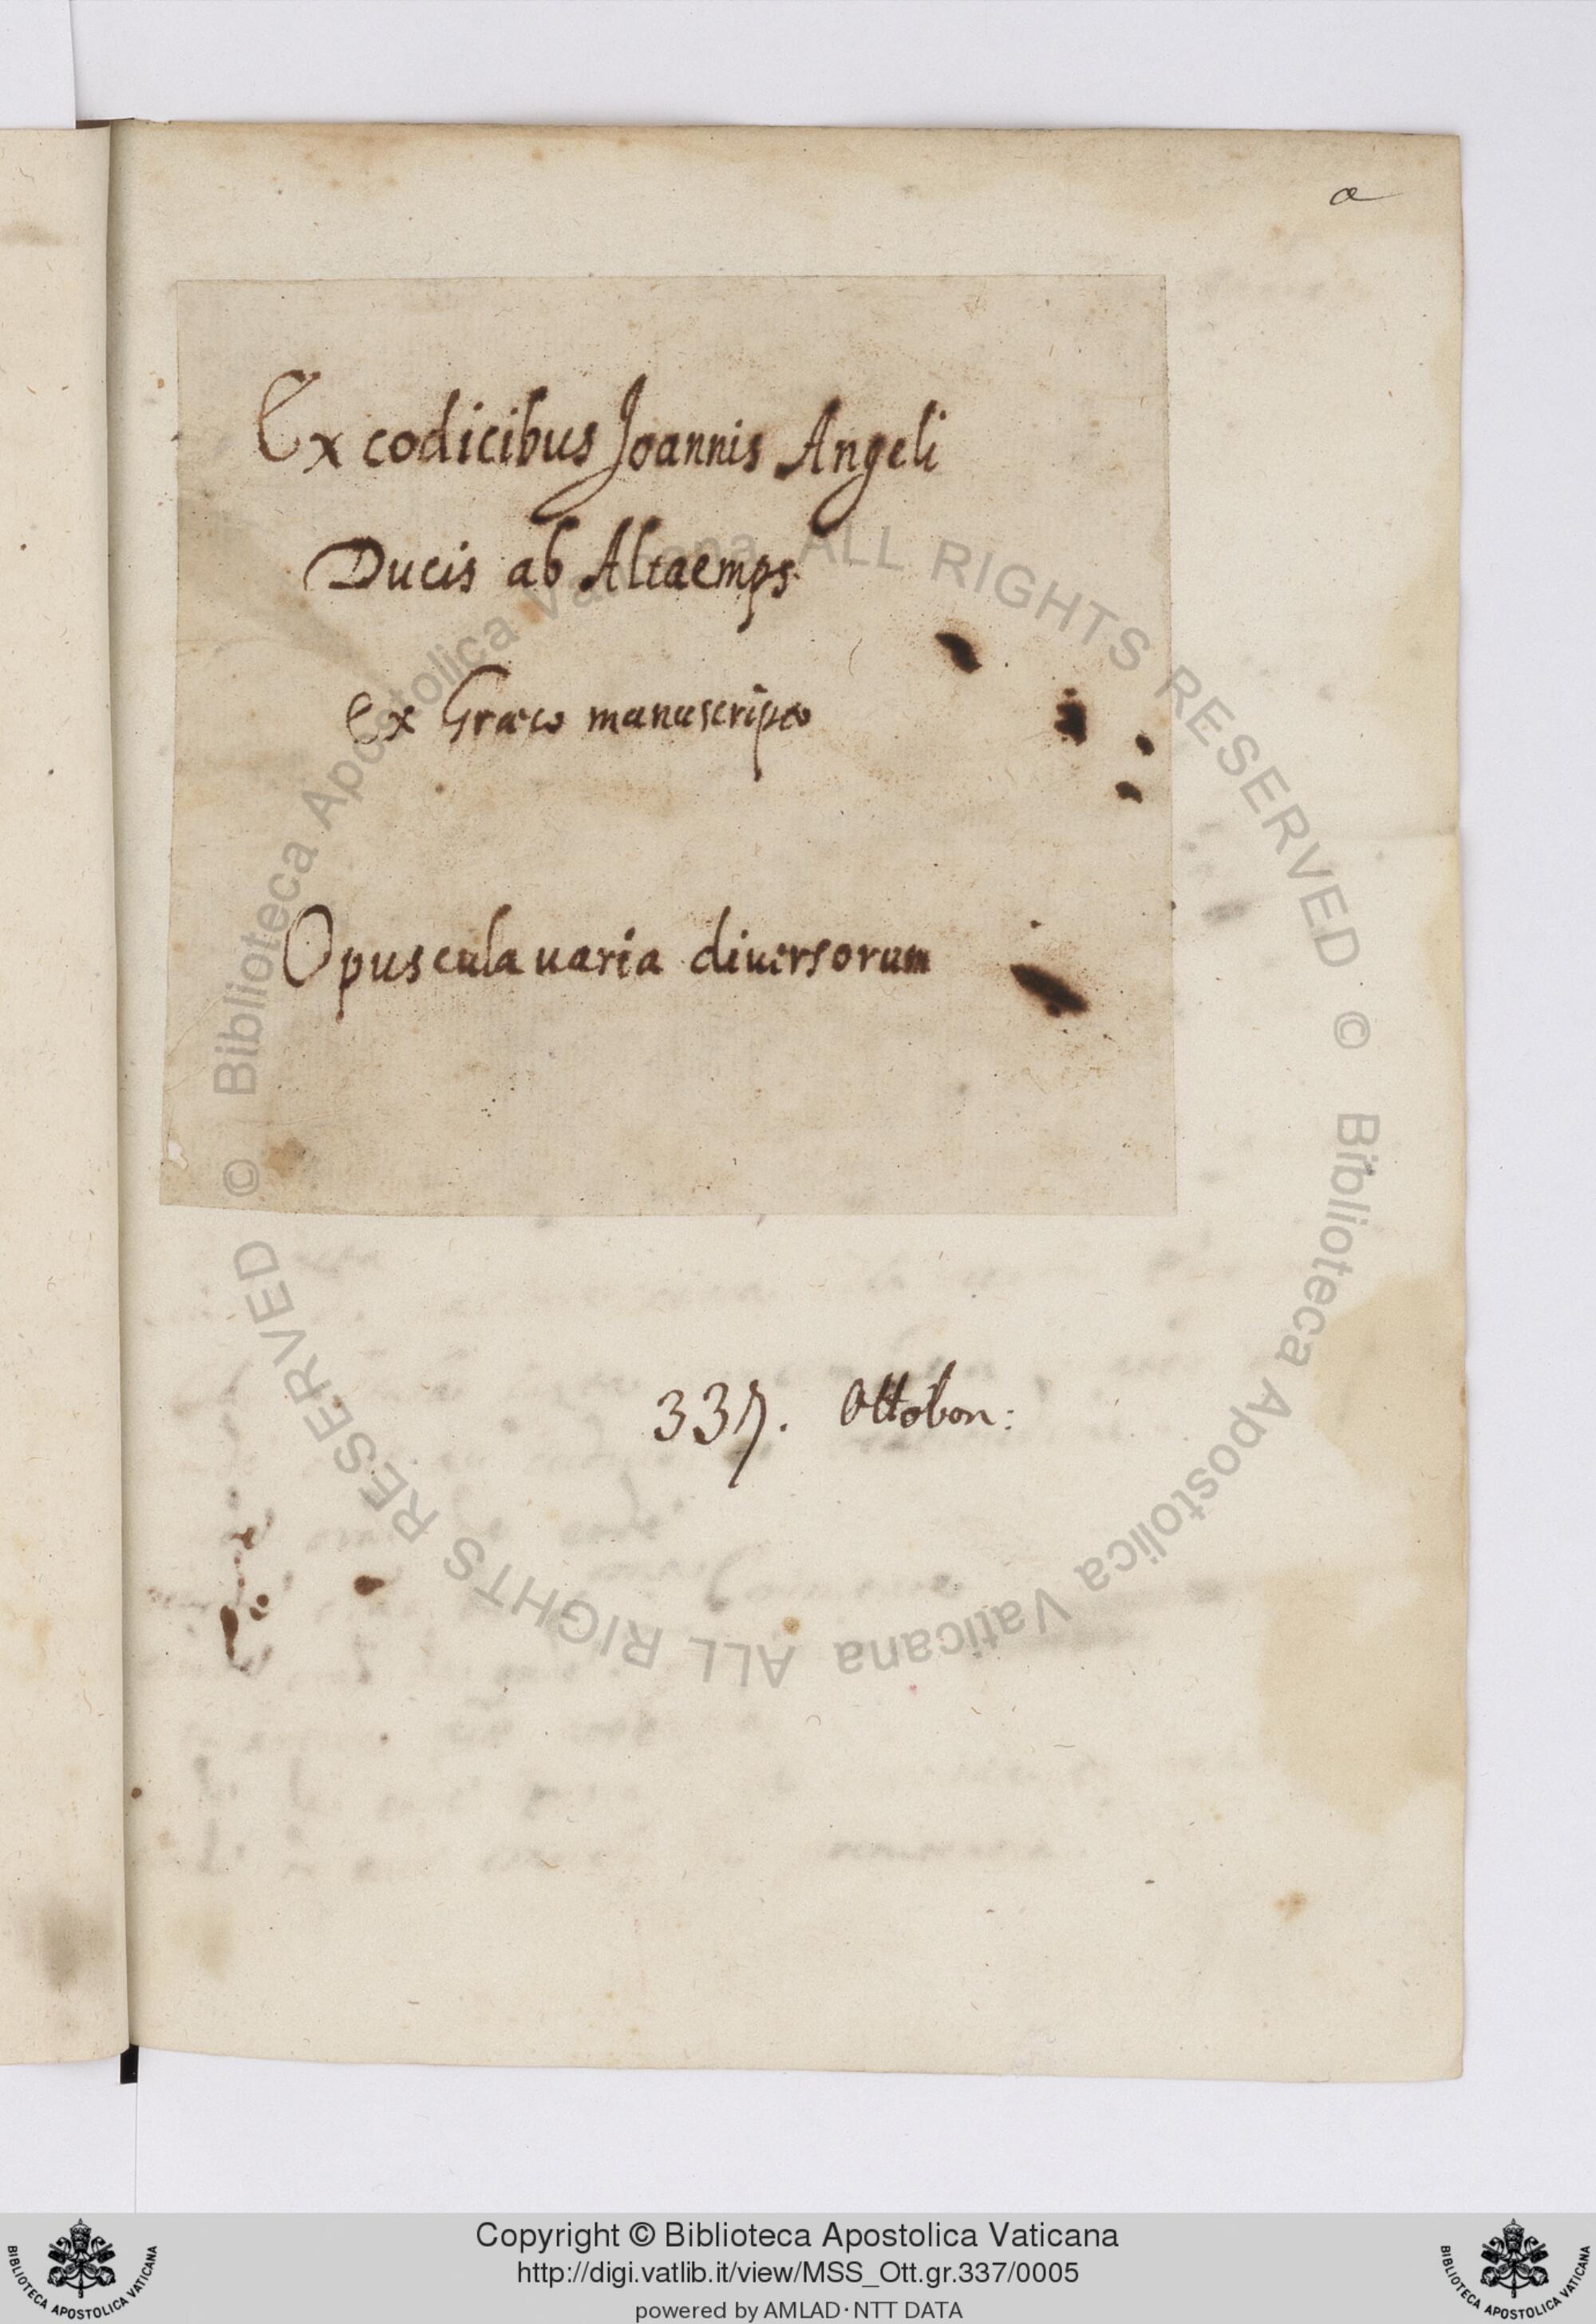 a
Ex codicibus Joannis Angeli
Ducis ab Altaemps
ex Græco manuscripto
Opuscula uaria diuersorum
337. Ottobon:
© Biblioteca Apostolica Vaticana ALL RIGHTS RESERVED
© Biblioteca Apostolica Vaticana ALL RIGHTS RESERVED
Copyright © Biblioteca Apostolica Vaticana
http://digi.vatlib.it/view/MSS_Ott.gr.337/0005
powered by AMLAD·NTT DATA
BIBLIOTECA APOSTOLICA VATICANA
BIBLIOTECA APOSTOLICA VATICANA